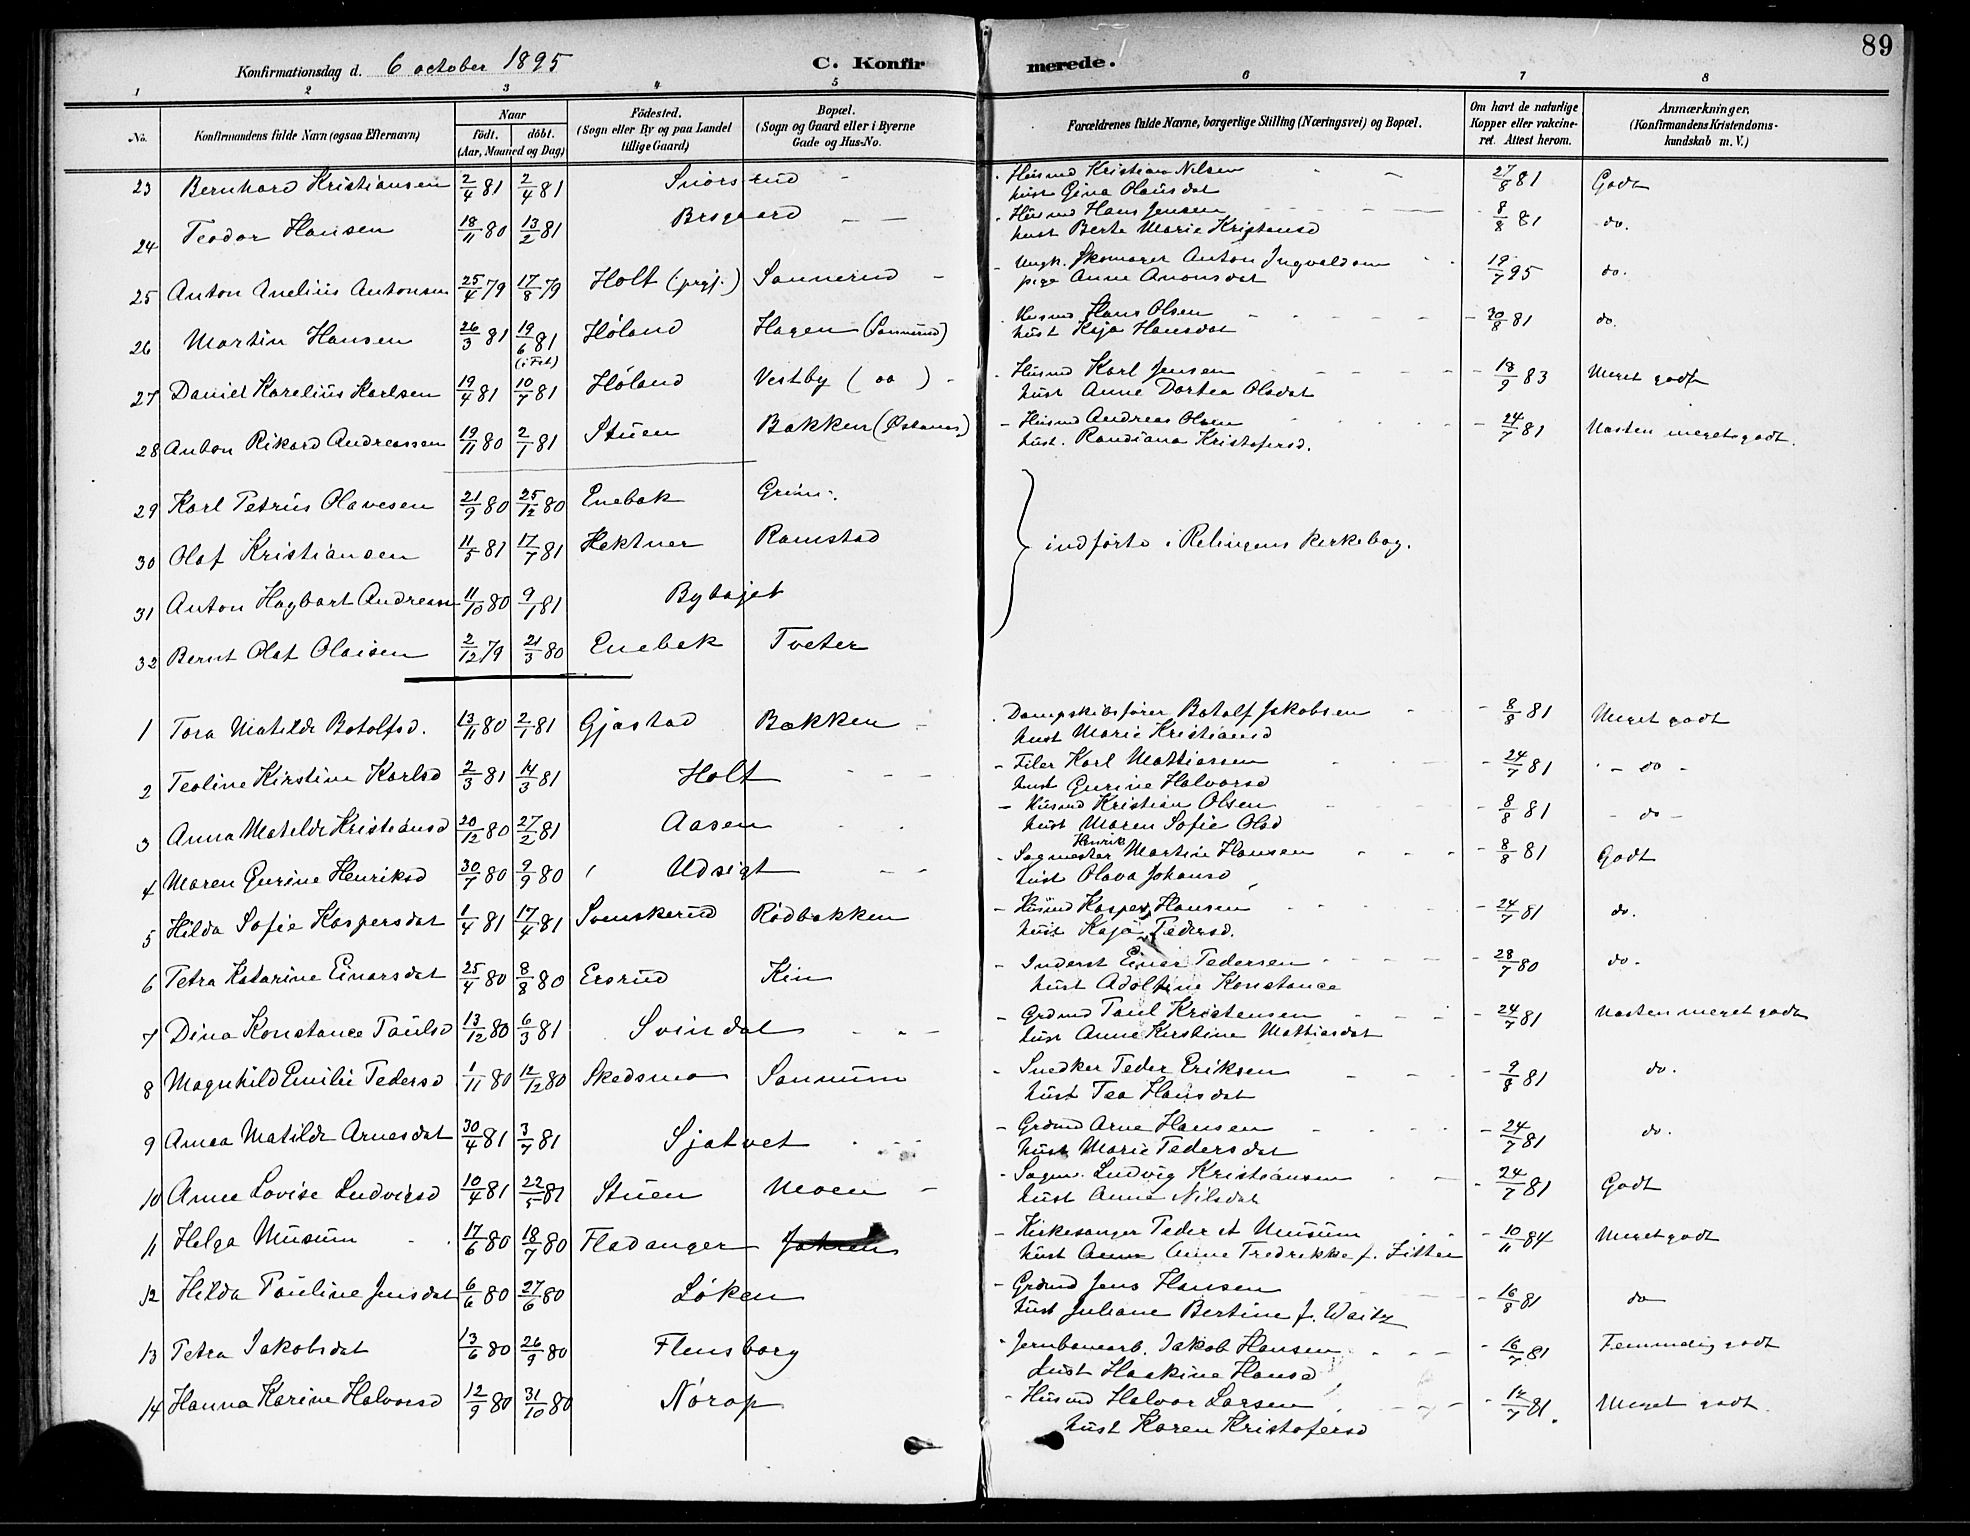 89
Konfirmationsdag d. 6 october 1895 C. Konfirmerede.
1 2 3 4 5 6 7 8
No. Konfirmandens fulde Navn (ogsaa Efternavn) Naar født. døbt. (Aar, Maaned og Dag) Fødested. (Sogn eller By og paa Landet tillige Gaard) Bopæl. (Sogn og Gaard eller i Byerne Gade og Hus-No. Forældrenes fulde Navne, borgerlige Stilling (Næringsvei) og Bopæl. Om havt de naturlige Kopper eller vakcineret. Attest herom. Anmærkninger, (Konfirmandens Kristendomskundskab m. V.)
23 Bernhard Kristiansen 2/4 81 2/4 81 Husmd Kristian Nilsen 27/8 81 Godt
hust Gina Olausdat
24 Teodor Hansen 18/11 80 13/2 81 Husmd Hans Jensen 8/8 81 do.
hust Berte Marie Kristensd
25 Anton Anelius Antonsen 25/4 79 17/8 79 Holt (prgj.) Sannerud Ungk. Skomager Anton Ingvaldsen 19/7 95 do.
pige Anne Anonsdat
26 Martin Hansen 26/3 81 19/6 81 (i Fet) Høland Hagen (Sannerud) Husmd Hans Olsen 30/8 81 do.
hust Kaja Hansdat
27 Daniel Karelius Karlsen 19/4 81 10/7 81 Høland Vestby ( do ) Husmd Karl Jensen 18/9 83 Meget godt
hust Anne Dortea Olsdat
28 Anton Rikard Andreassen 19/11 80 2/1 81 Stuen Bakken Husmd Andreas Olsen 24/7 81 Næsten meget godt.
hust. Randiana Kristofersd.
29 Karl Petrus Olavesen 21/9 80 25/12 80 Enebak
30 Olaf Kristiansen 11/5 81 17/7 81 Hektner Ramstad indførte i Relingens Kirkebog.
31 Anton Hagbart Andreasen 11/10 80 9/1 81
32 Bernt Olaf Olaisen 2/12 79 21/3 80 Enebak Tveter
1 Tora Matilde Botolfsd. 13/11 80 2/1 81 Gjøstad Bakken Dampskibsfører Botolf Jakobsen 8/8 81 Meget godt
hust Marie Kristiansd
2 Teoline Kirstine Karlsd 2/3 81 14/3 81 Holt Filer Karl Mattiassen 24/7 81 do
hust Gurine Halvorsd
3 Anna Matilde Kristiansd 20/12 80 27/2 81 Aasen Husmd Kristian Olsen 8/8 81 do
hust Maren Sofie Olsd
4 Maren Gurine Henriksd 30/7 80 9/9 80 Udsigt Sagmester Henrik Martin Hansen 8/8 81 Godt
hust Olava Johansd
5 Hilda Sofie Kaspersdat 1/4 81 17/4 81 Svenskerud Rødbakken Husmd Kasper Hansen 24/7 81 do.
hust Kaja Pedersd.
6 Petra Katarine Einarsdat 25/4 80 8/8 80 Ersrud Kin Inderst Einar Pedersen 28/7 80 do.
hust Adoltine Konstance
7 Dina Konstance Paulsd 13/12 80 6/3 81 Svindal Grdmd Paul Kristensen 24/7 81 Næsten meget godt
hust Anne Kirstine Mattiasdat
8 Magnhild Emilie Pedersd 1/11 80 12/12 80 Skedsmo Sannum Snedker Peder Eriksen 9/8 81 do.
hust Tea Hansdat
9 Anna Matilde Arnesdat 30/4 81 3/7 81 Sjatvet Grdmd Arne Hansen 24/7 81 do.
hust Marie Pedersdat
10 Anna Lovise Ludvigsd 10/4 81 22/5 81 Stuen Moen Sagm. Ludvig Kristiansen 24/7 81 Godt
hust Anne Nilsdat
11 Helga Musum 17/6 80 18/7 80 Fladanger Kirkesanger Peder A Musum 10/11 84 Meget godt
hust Anne Fredrikke f.
12 Hilda Pauline Jensdat 6/6 80 27/6 80 Løken Grdmd Jens Hansen 16/8 81 do
hust Juliane Bertine f. Waitz
13 Petra Jakobsdat 13/6 80 26/9 80 Flensborg Jernbanearb. Jakob Hansen 16/7 81 godt
hust Haakine Hansd
14 Hanna Karine Halvorsd 12/9 80 31/10 80 Nørop Husmd Halvor Larsen 12/7 81. Meget godt.
hust Karen Kristofersd